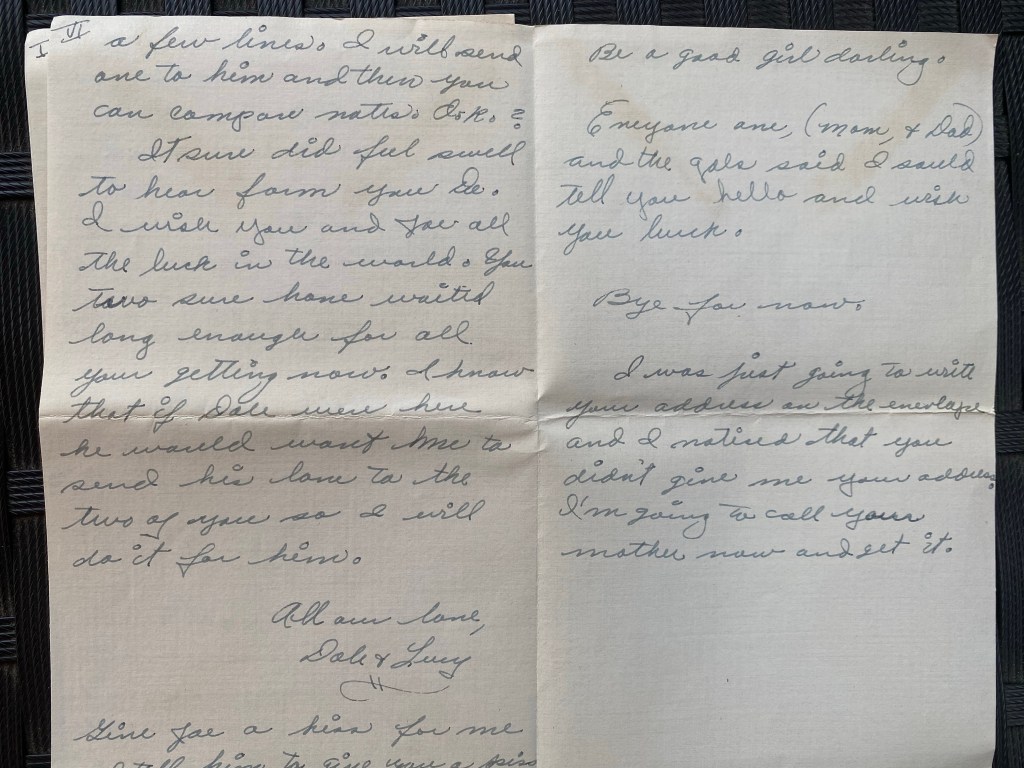 VI
I
a few lines. I will send
one to him and then you
can compare notes. O.K.?
It sure did feel swell
to hear form you De.
I wish you and Joe all
the luck in the world. You
two sure have waited
long enough for all
your getting now. I know
that if Dale were here
he would want me to
send his love to the
two of you so I will
do it for him.
All our love,
Dale & Lucy
Give Joe a kiss for me
tell him to give you a kiss
Be a good girl darling.
Eneyone one, (Mom, & Dad)
and the gals said I sould
tell you hello and wish
you luck.
Bye for now.
I was just going to write
your address on the envelope
and I noticed that you
didn't give me your address.
I'm going to call your
mother now and get it.